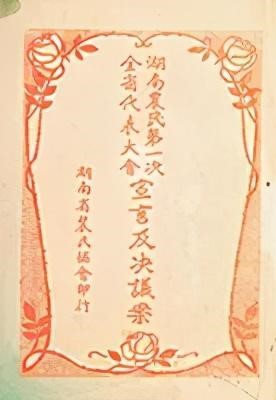 湖南農民第一次
全省代表大會
宣言及决議案
湖南省農民協會印行